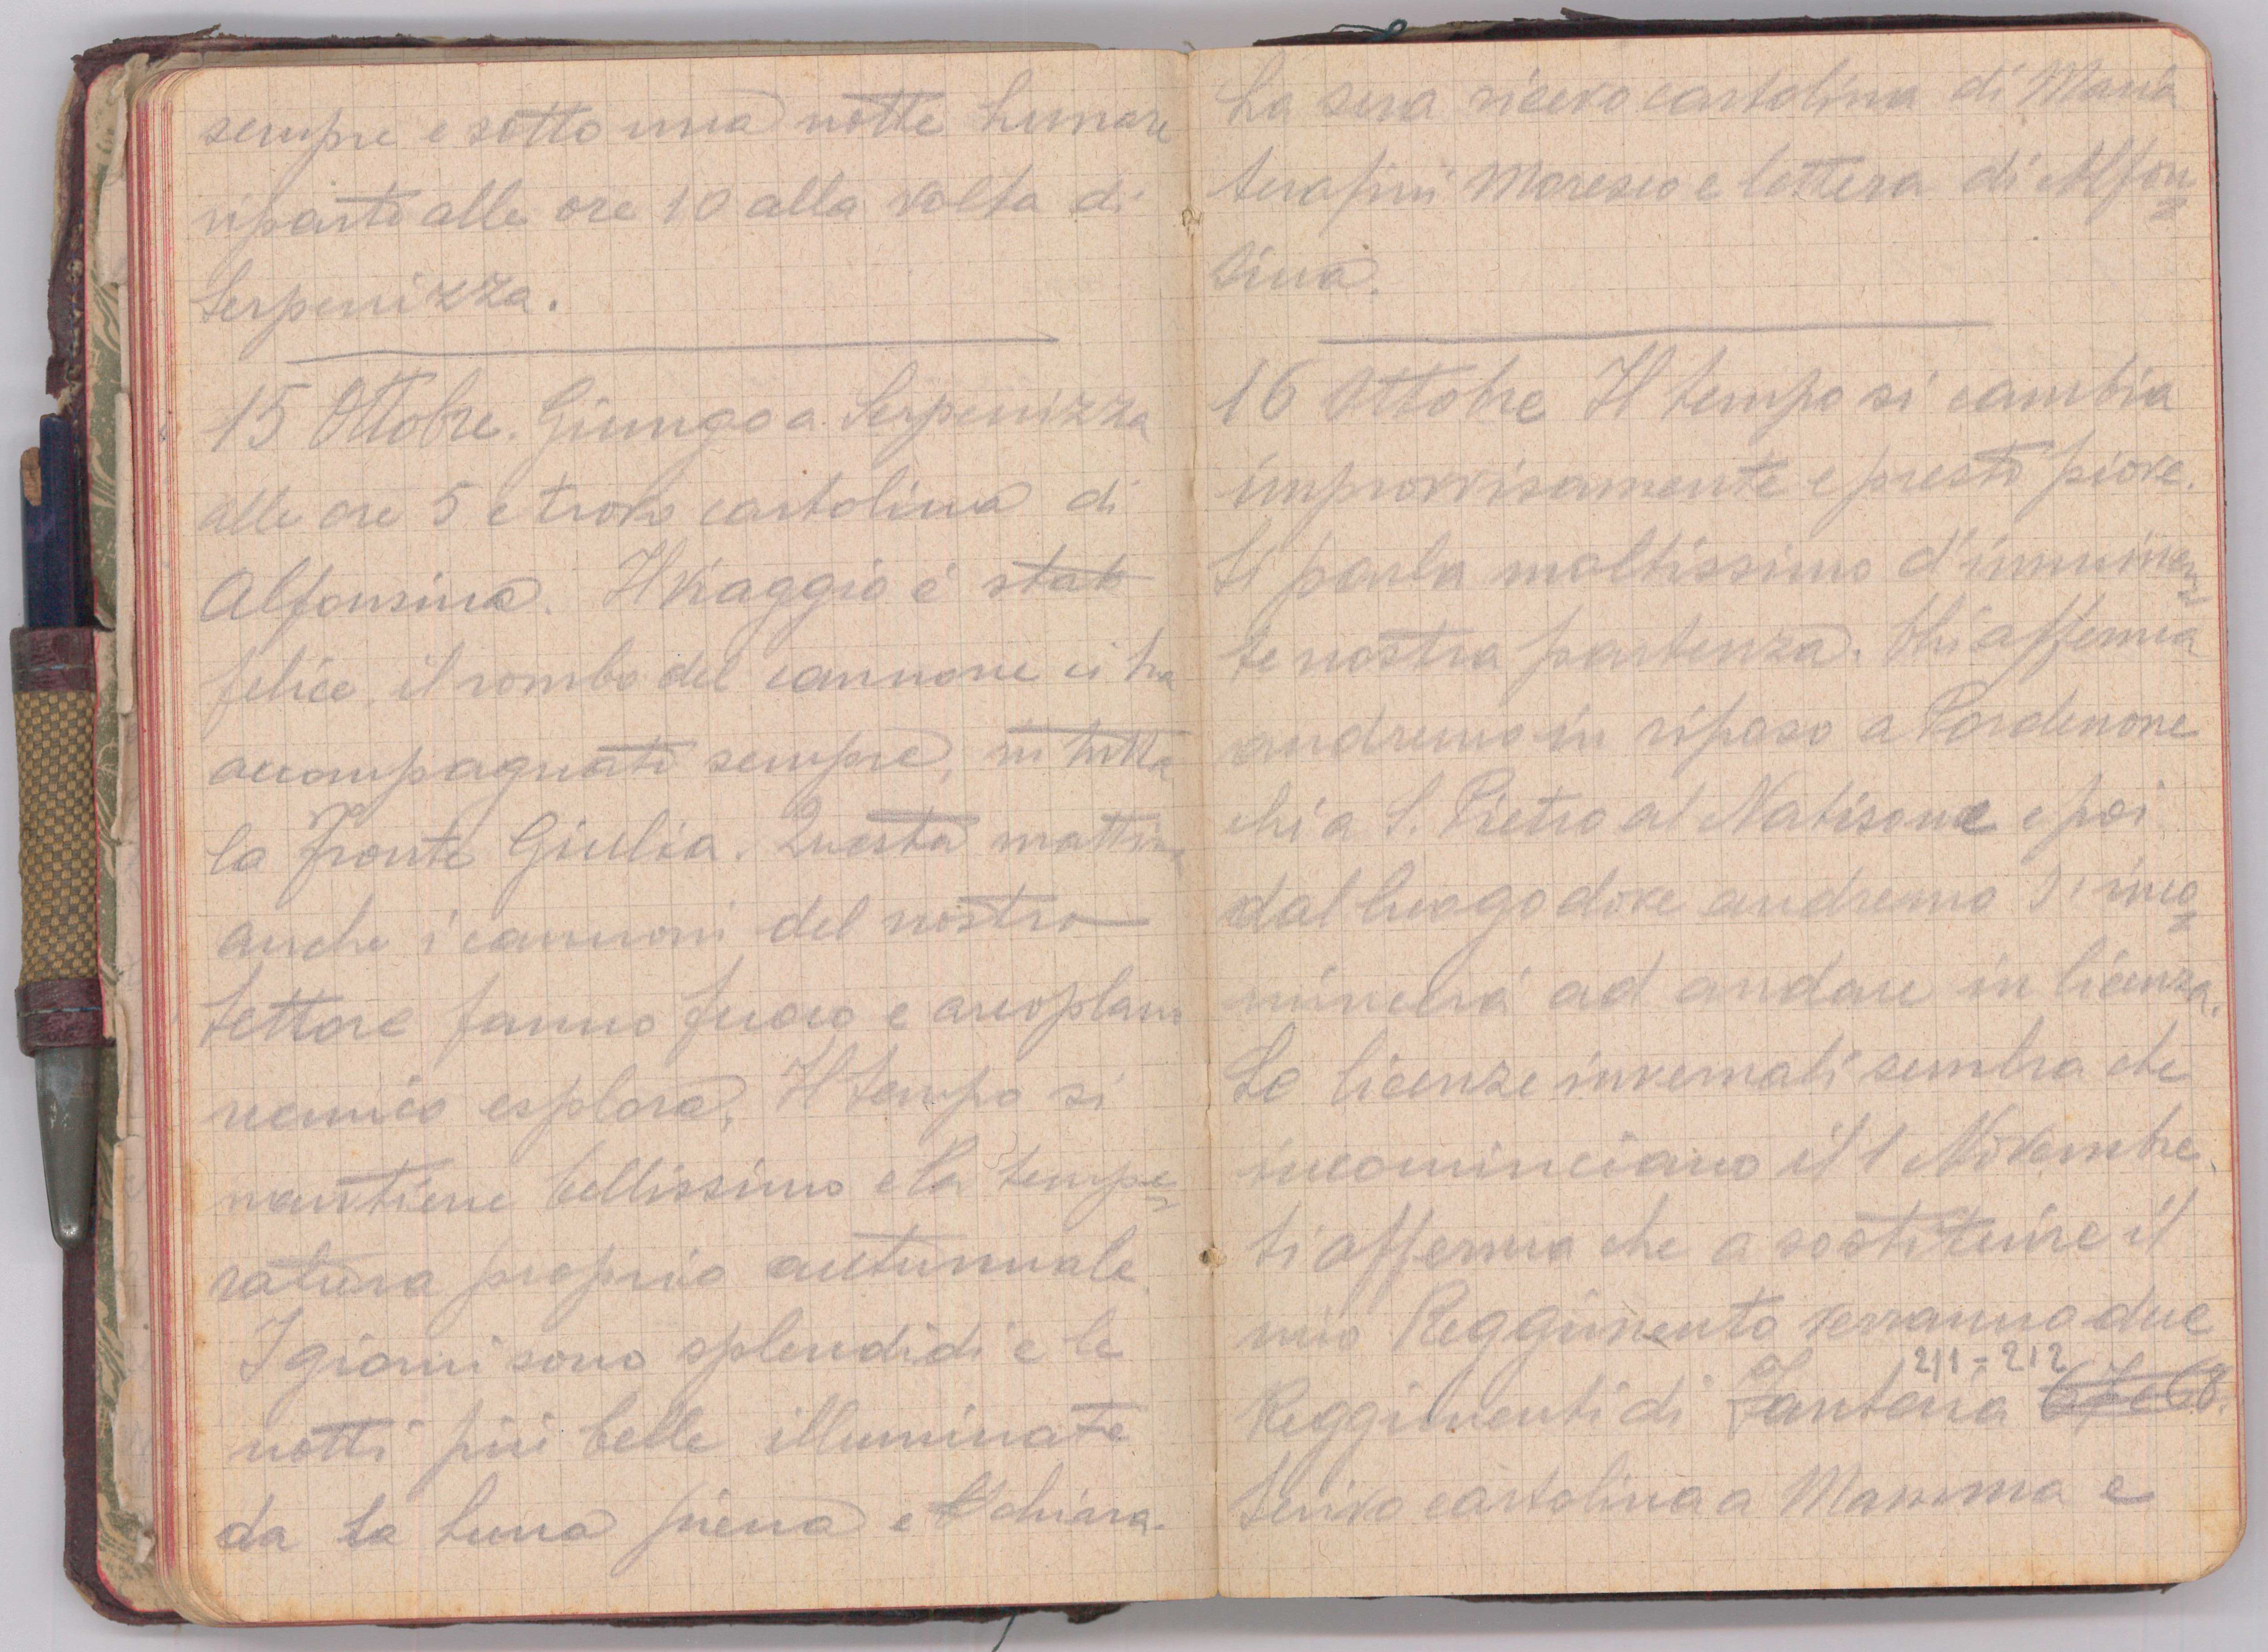 sempre e sotto una notte Lunare
riparto alle ore 10 alla volta di
Serpenizza.
15 Ottobre. Giungo a Serpenizza
alle ore 5 e trovo cartolina di
Alfonsina. Il viaggio è stato
felice, il rombo del cannone ci ha
accompagnato sempre, in tutta
la Fronte Giulia. Questa mattina
anche i cannoni del nostro
Settore fanno fuoco e areoplano
nemico esplora. Il tempo si
mantiene bellissimo e la tempe=
ratura proprio autunnale.
I giorni sono splendidi e le
notti più belle illuminate
da la Luna piena e chiara.
La sera ricevo cartolina di Maria
Serafini Moresco e lettera di Alfon=
sina.
16 Ottobre Il tempo si cambia
improvvisamente e presto piove.
Si parla moltissimo d'imminen=
te nostra partenza. Chi afferma
andremo in riposo a Pordenone
chi a S. Pietro al Natisone e poi
dal luogo dove andremo s'inco=
mincerà ad andare in licenza.
Le licenze invernali sembra che
incominciano il 1 Novembre.
Si afferma che a sostituire il
mio Reggimento verranno due
211=212
Reggimenti di Fanteria 67 e 68.
Scrivo cartolina a Mamma e